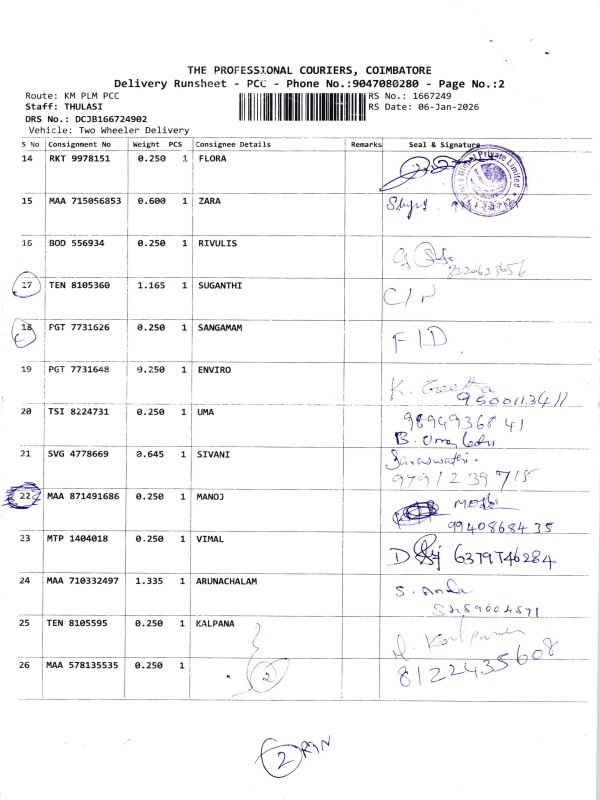 THE PROFESSIONAL COURIERS, COIMBATORE
Delivery Runsheet - PCC - Phone No.:9047080280 - Page No.:2
Route: KM PLM PCC
RS No.: 1667249
Staff: THULASI
RS Date: 06-Jan-2026
DRS No.: DCJB166724902
Vehicle: Two Wheeler Delivery
S No Consignment No Weight PCS Consignee Details Remarks Seal & Signature
14 RKT 9978151 0.250 1 FLORA
Private Limited
15 MAA 715056853 0.600 1 ZARA
16 BOD 556934 0.250 1 RIVULIS
17 TEN 8105360 1.165 1 SUGANTHI
C/N
18 PGT 7731626 0.250 1 SANGAMAM
F/D
19 PGT 7731648 0.250 1 ENVIRO
K. Geetha
9500113411
20 TSI 8224731 0.250 1 UMA
9894936841
21 SVG 4778669 0.645 1 SIVANI
Saraswathi
9791239715
22 MAA 871491686 0.250 1 MANOJ
9940868435
23 MTP 1404018 0.250 1 VIMAL
6379746284
24 MAA 710332497 1.335 1 ARUNACHALAM
25 TEN 8105595 0.250 1 KALPANA
Kalpana
26 MAA 578135535 0.250 1
2
8122435608
2 RTN